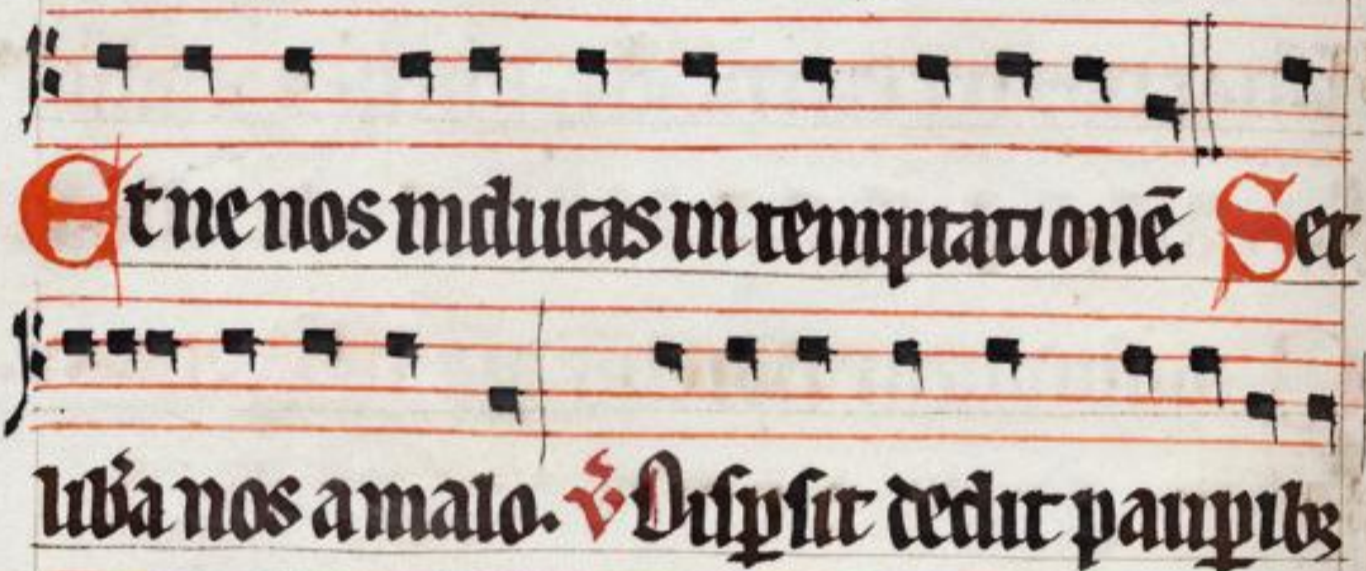 Et ne nos inducas in temptationē. Set
lib̾a nos a malo. V̾ Disꝑsit dedit pauꝑibꝫ